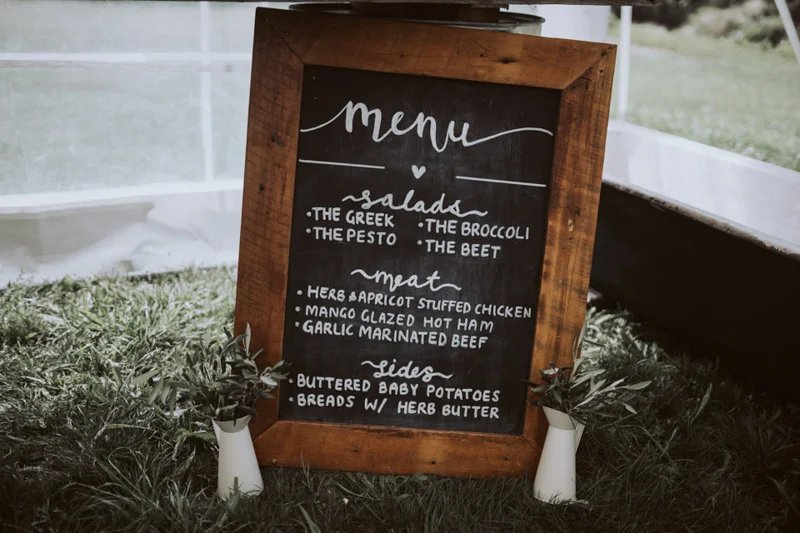 menu
salads
•THE GREEK •THE BROCCOLI
•THE PESTO •THE BEET
meat
• HERB & APRICOT STUFFED CHICKEN
• MANGO GLAZED HOT HAM
• GARLIC MARINATED BEEF
sides
• BUTTERED BABY POTATOES
• BREADS W/ HERB BUTTER